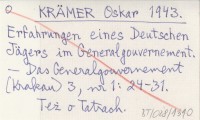 KRÄMER Oskar 1943.
Erfahrungen eines Deutschen
Jägers im Generalgouvernement.
– Das Generalgouvernement
(Krakau) 3, nr 1: 24-31.
Też o Tatrach.